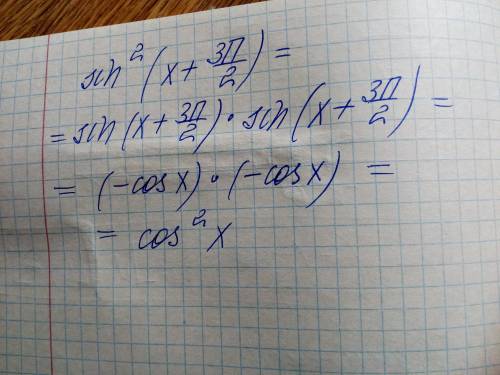 sin²(x + 3π/2) =
= sin(x + 3π/2) · sin(x + 3π/2) =
= (-cosx) · (-cosx) =
= cos²x